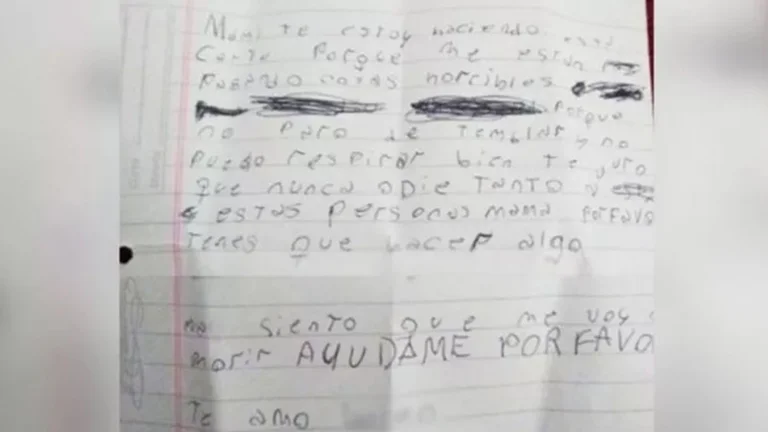 Mami te estoy haciendo esta
Carta Porque me están
Pasando cosas horribles
Porque
no Paro de Temblar y no
Puedo respirar bien Te juro
que nunca odie TanTo a
estas Personas mama PorFavo
Tenes que hacer algo
me siento que me voy a
morir AYUDAME POR FAVO
Te amo